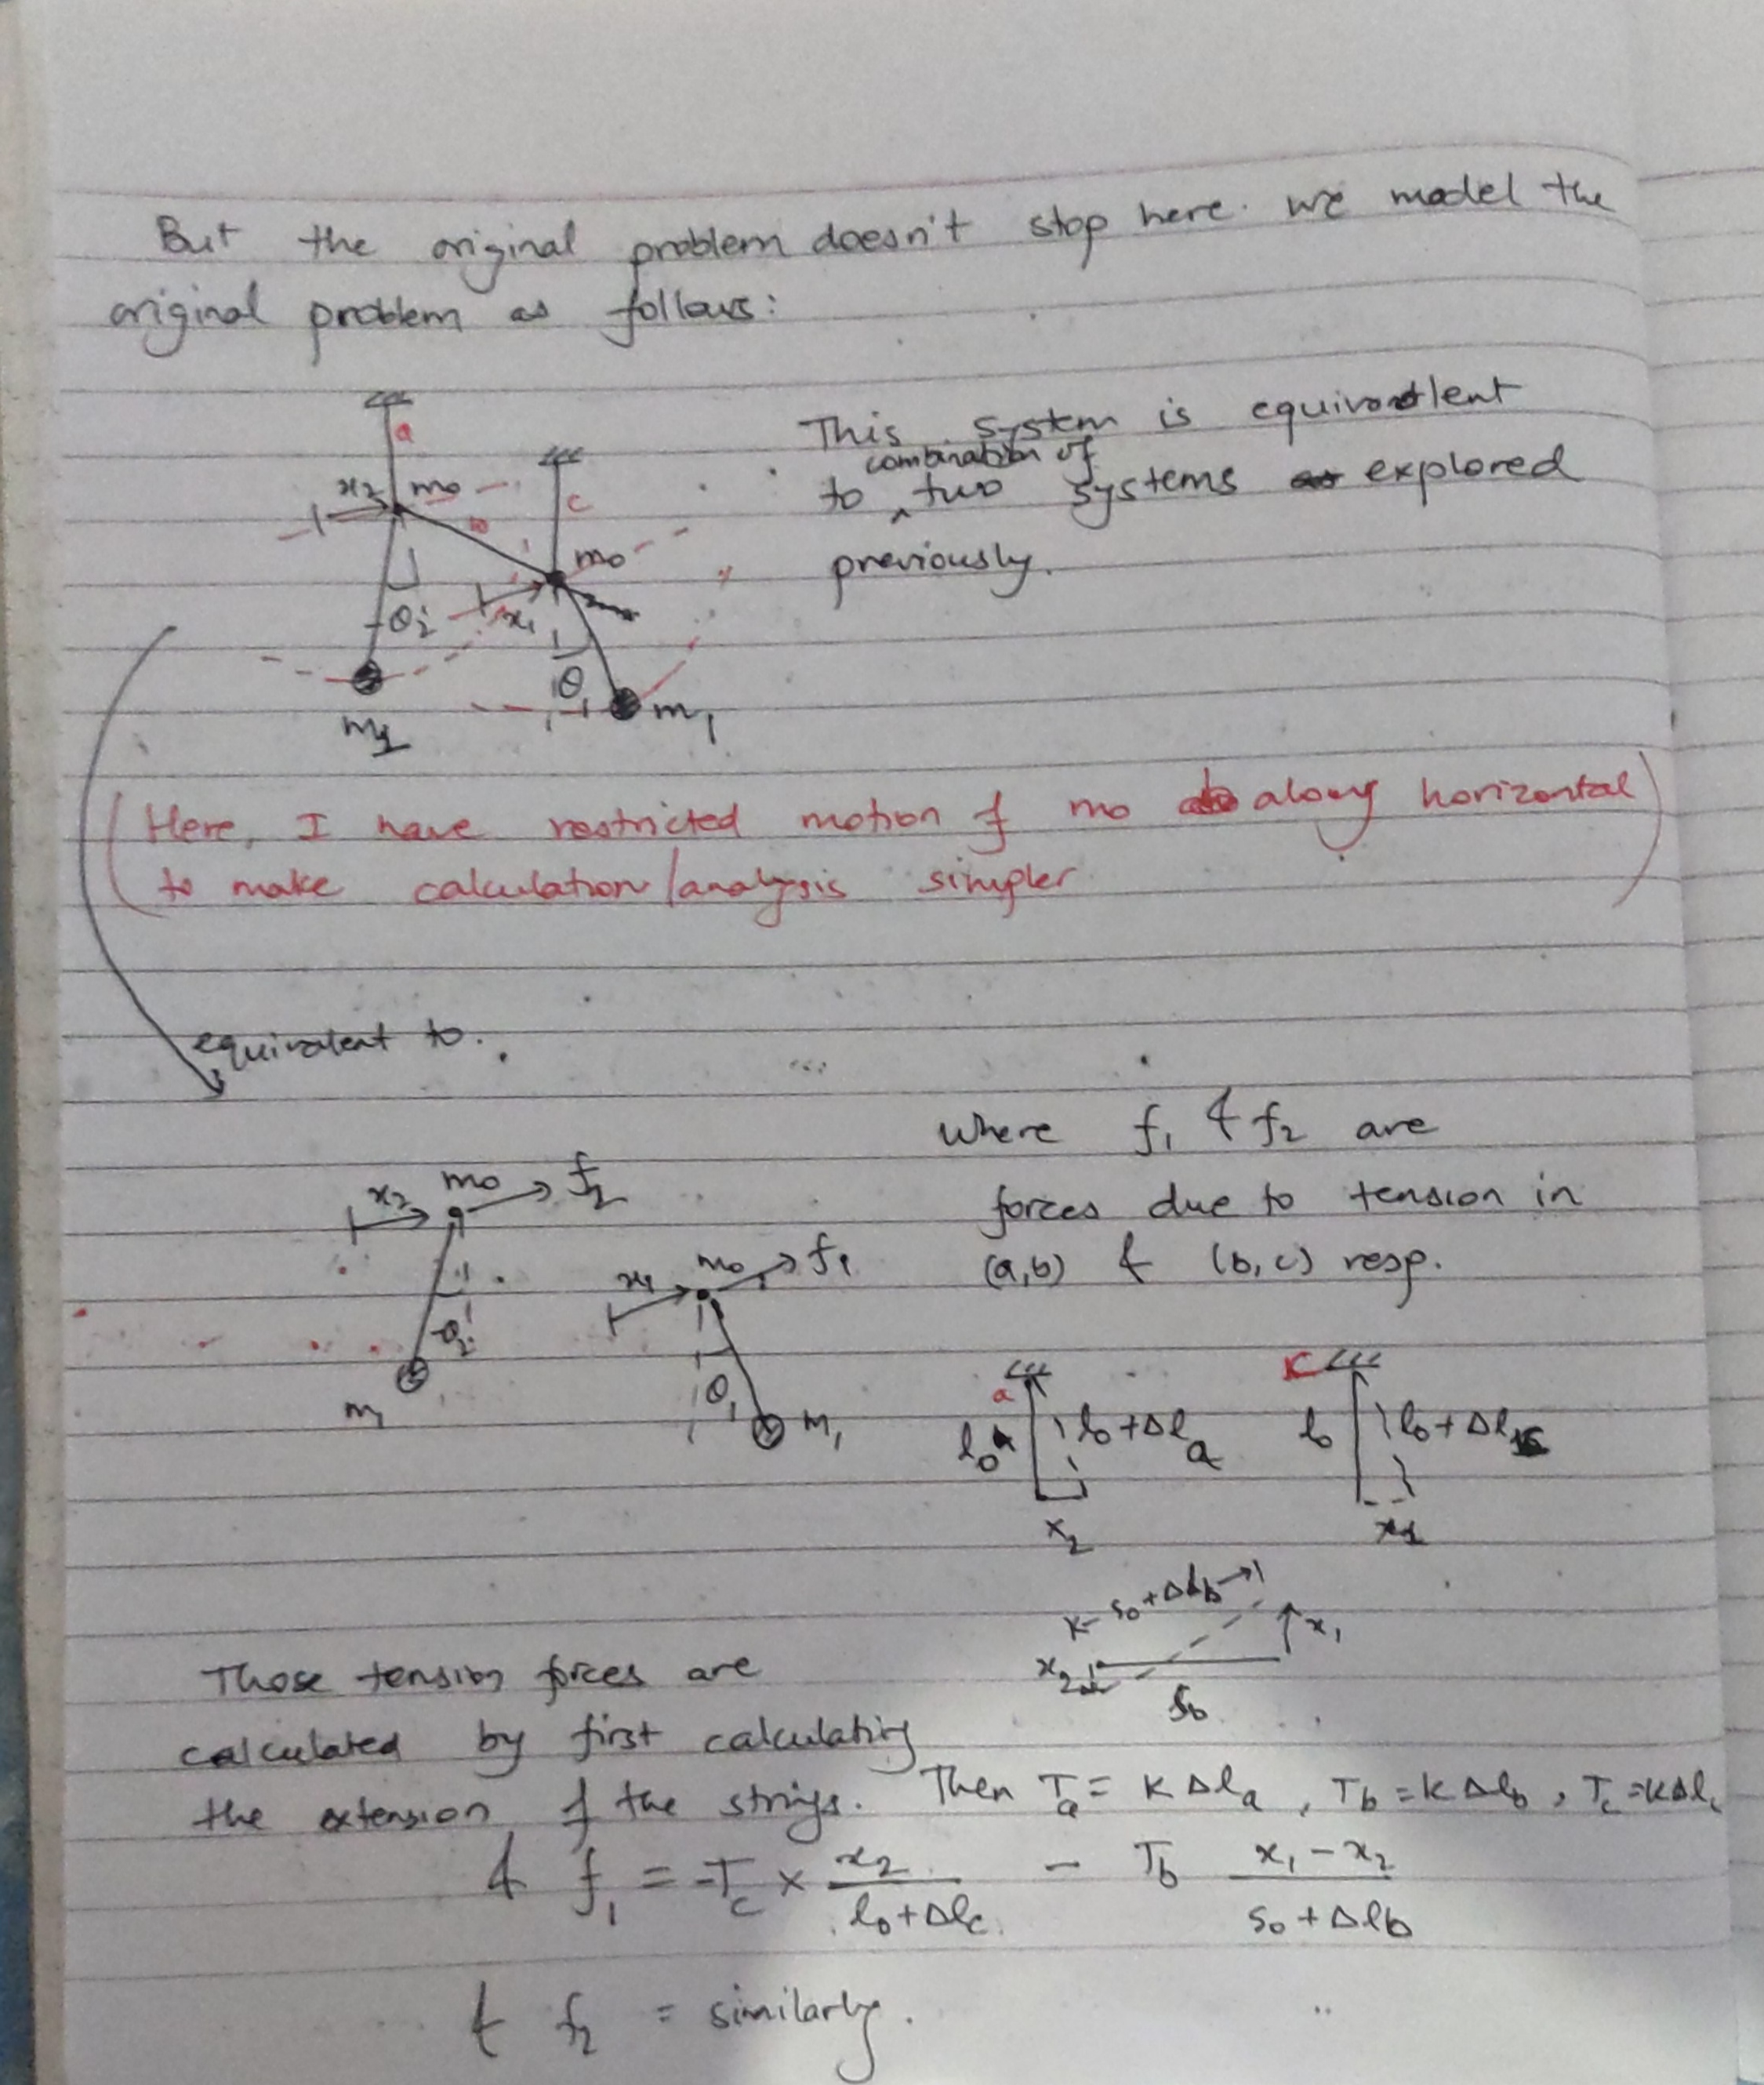 But the original problem doesn't stop here. we model the
original problem as follows:
a
x₂ m₀
b
c
m₀
This system is equivalent
combination of
to ‸ two systems explored
previously.
-θ₂
x₁
θ₁
m₁
m₁
(Here, I have restricted motion of m₀ along horizontal)
to make calculation/analysis simpler
equivalent to.
where f₁ & f₂ are
forces due to tension in
(a,b) & (b,c) resp.
x₂ m₀ f₂
x₁ m₀ f₁
-θ₂
θ₁
m₁
m₁
a
l₀ l₀+Δlₐ
x₂
c
l₀ l₀+Δl_c
x₁
s₀+Δl_b
x₁
x₂
s₀
Those tension forces are
calculated by first calculating
the extension of the strings. Then Tₐ = KΔlₐ, T_b = KΔl_b, T_c = KΔl_c
& f₁ = -T_c × x₂/(l₀+Δl_c) - T_b (x₁-x₂)/(s₀+Δl_b)
& f₂ = similarly.